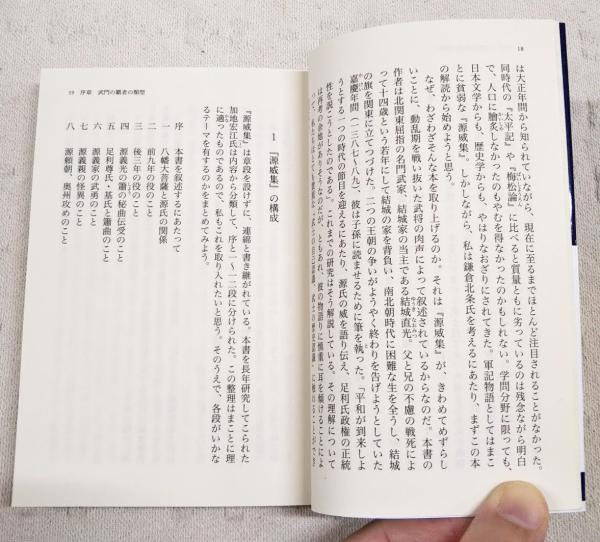 18
は大正年間から知られていながら、現在に至るまでほとんど注目されることがなかった。
同時代の『太平記』や『梅松論』に比べると質量ともに劣っているのは残念ながら明白
で、人口に膾炙しなかったのもやむを得なかったのかもしれない。学問分野に限っても、
日本文学からも、歴史学からも、やはりなおざりにされてきた。軍記物語としてはまこ
とに貧弱な『源威集』。しかしながら、私は鎌倉北条氏を考えるにあたり、まずこの本
の解読から始めようと思う。
なぜ、わざわざそんな本を取り上げるのか。それは『源威集』が、きわめてめずらし
いことに、動乱期を戦い抜いた武将の肉声によって叙述されているからなのだ。本書の
作者は北関東屈指の名門武家、結城家の当主である結城直光。父と兄の不慮の戦死によ
って十四歳という若年にして結城の家を背負い、南北朝時代に困難な生を全うし、結城
の旗を関東に立てつづけた。二つの王朝の争いがようやく終わりを告げようとしていた
嘉慶年間（一三八七〜八九）、彼は子孫に読ませるために筆を執った。「平和が到来しよ
うとする一つの時代の節目を迎えるにあたり、源氏の威を語り伝え、足利氏政権の正統
性を説こうとしたのである」。これまでの研究はそう解説している。その理解について
は再考の余地がありそうなのだが、ともあれ、彼の物語りに慎重に耳を傾けることによ
19 序章 武門の覇者の類型
1 『源威集』の構成
『源威集』は章段を設けずに、連綿と書き継がれている。本書を長年研究してこられた
加地宏江氏は内容から分類して、序と一〜一二段に分けられた。この整理はまことに理
に適ったものであるので、私もこれを取り入れたいと思う。そのうえで、各段がいかな
るテーマを有するのかをまとめてみよう。
序 本書を叙述するにあたって
一 八幡大菩薩と源氏の関係
二 前九年の役のこと
三 後三年の役のこと
四 源義光の簫の秘曲伝受のこと
五 足利尊氏・基氏と簫曲のこと
六 源義家の武勇のこと
七 源義親の怪異のこと
八 源頼朝、奥州攻めのこと